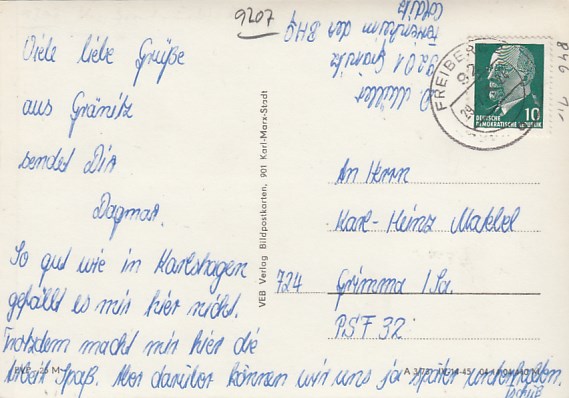 9207
Viele liebe Grüße
aus Gränitz
sendet Dir
Dagmar.
So gut wie in Karlshagen
gefällt es mir hier nicht.
Trotzdem macht mir hier die
Arbeit Spaß. Aber darüber können wir uns ja später unterhalten.
Tschüß
D. Müller
9201 Gränitz
Ferienheim der BHG
VEB Verlag Bildpostkarten, 901 Karl-Marx-Stadt
FREIBER
DEUTSCHE
DEMOKRATISCHE REPUBLIK
10
An Herrn
Karl-Heinz Makkel
724 Grimma / Sa.
PSF 32
EVP -,25 M